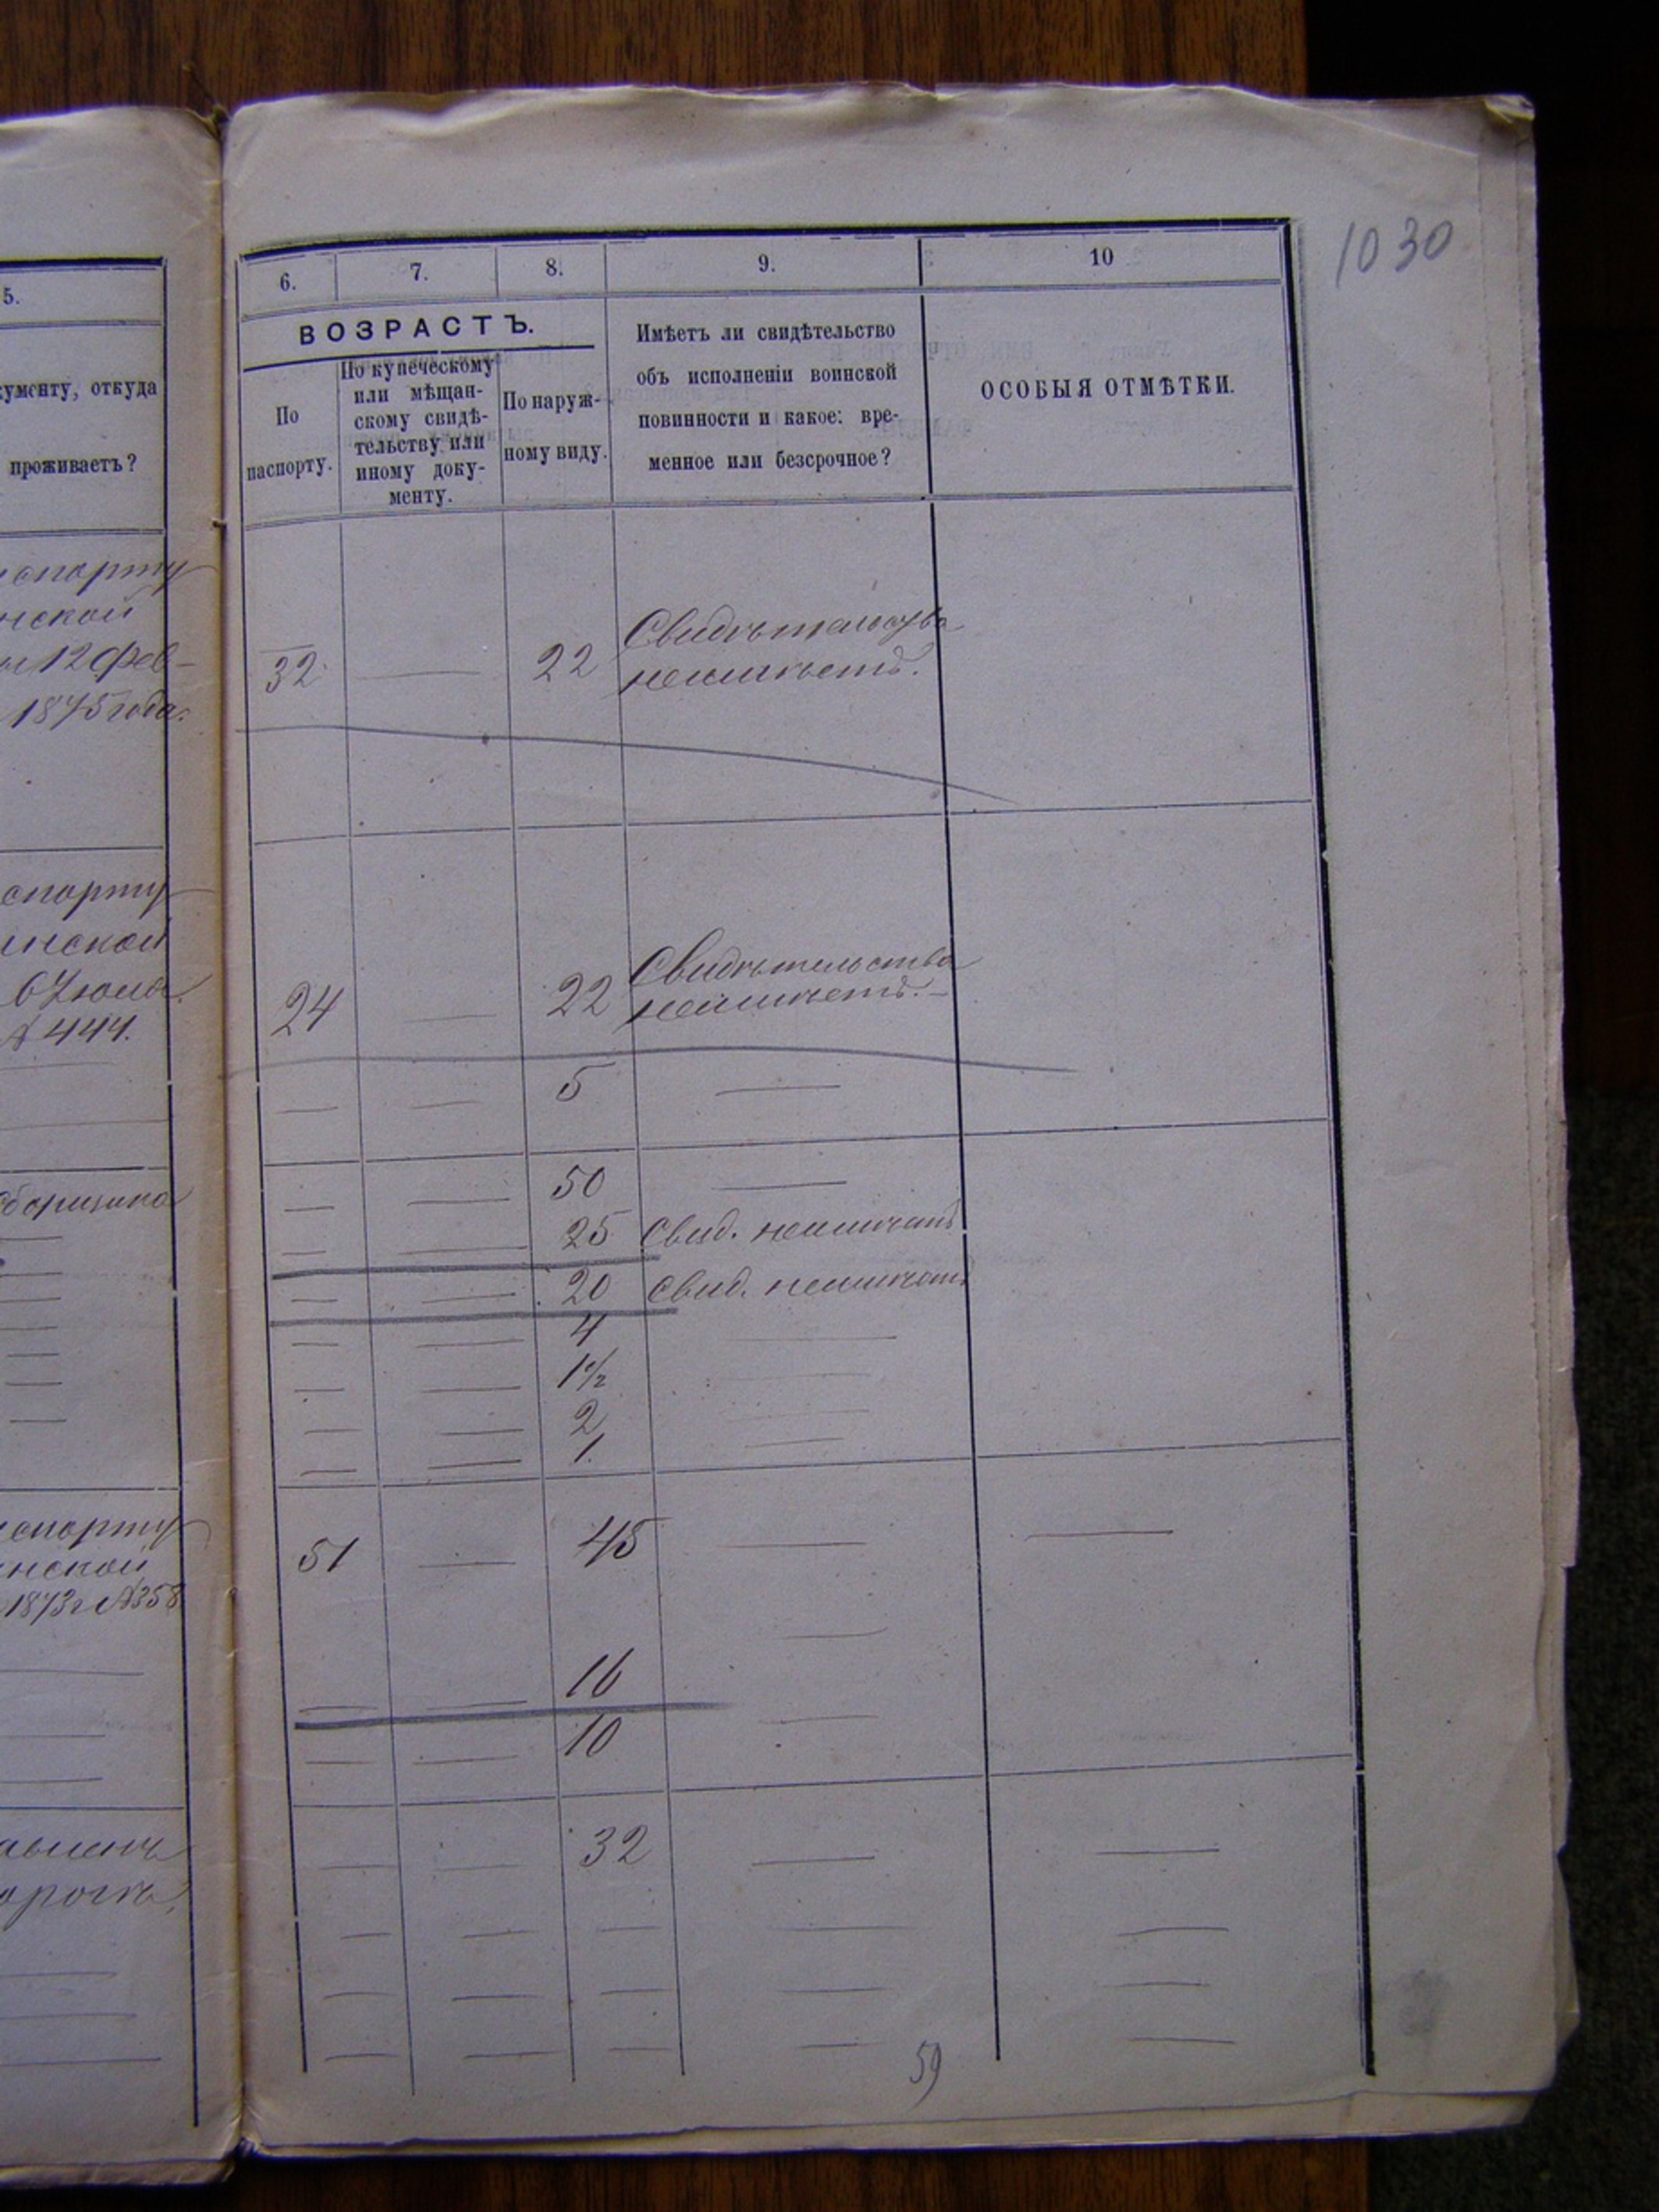 1030
5.
кументу, откуда
проживаетъ?
спорту
нской
12 фев-
1875 года.
спорту
инской
6 Июня
№ 444.
спорту
нской
1873 г № 358
6.
7.
8.
9.
10
ВОЗРАСТЪ.
По
паспорту.
По купеческому
или мѣщан-
скому свидѣ-
тельству или
иному доку-
менту.
По наруж-
ному виду.
Имѣетъ ли свидѣтельство
объ исполненіи воинской
повинности и какое: вре-
менное или безсрочное?
ОСОБЫЯ ОТМѢТКИ.
32
—
22
Свидѣтельства
неимѣетъ.
24
—
22
Свидѣтельства
неимѣетъ. —
— — 5 —
— — 50 —
— — 25 Свид. неимѣетъ
— — 20 Свид. неимѣетъ
— — 4 —
— — 1 1/2 —
— — 2 —
— — 1. —
51 — 45 — —
—
— — 16
— — 10 —
— — 32 — —
— — — — —
— — — — —
— — — — —
59